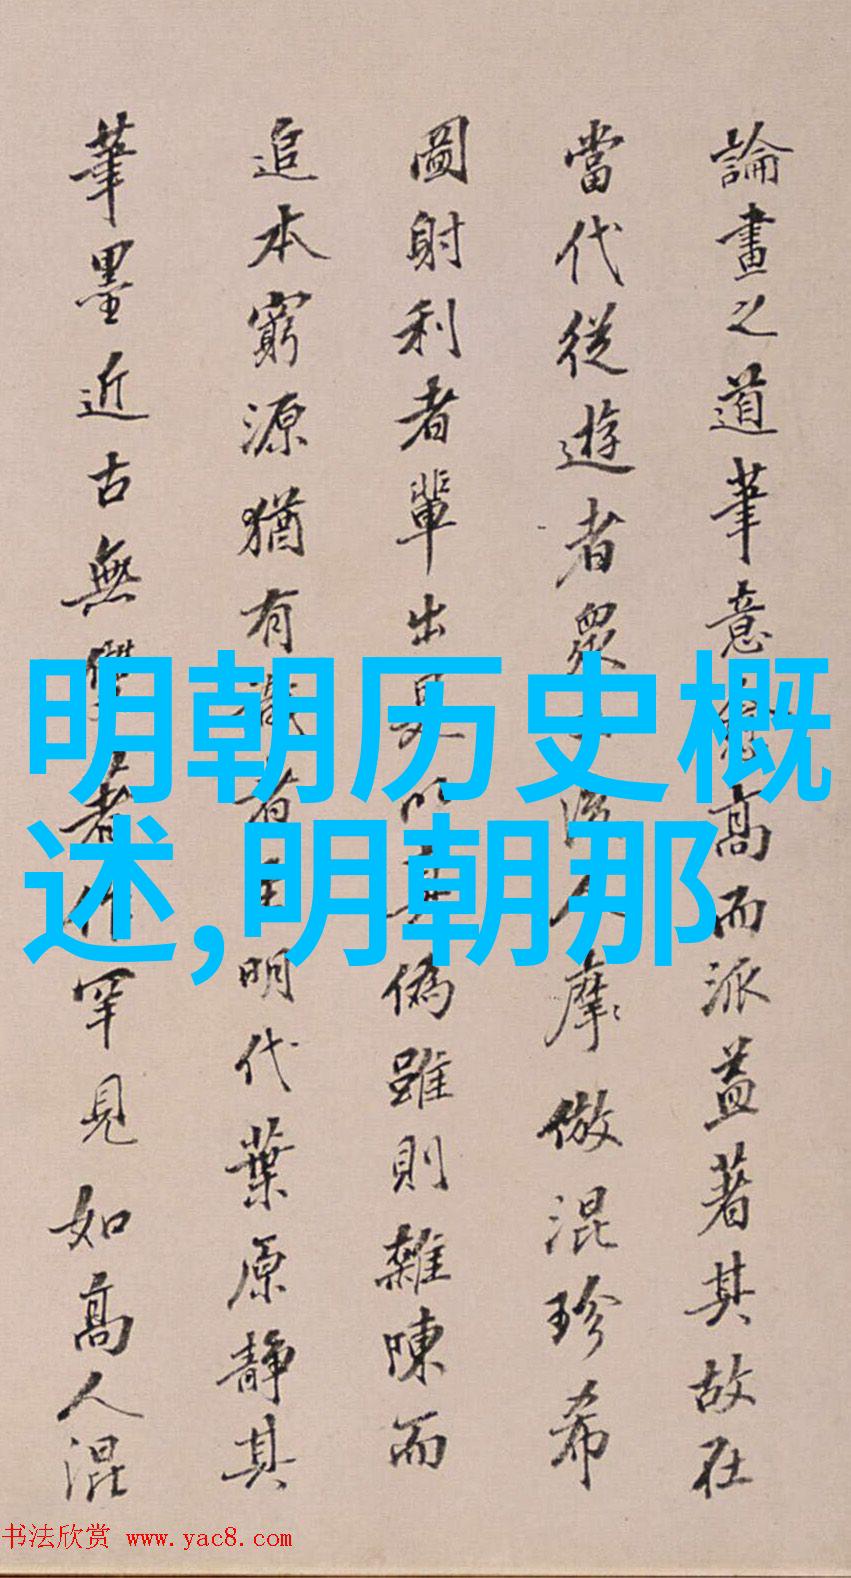 論畫之道筆意高而派益著其故在
當代從遊者眾人摩倣混珍希
圖射利者輩出是以偽雖則雜陳而
追本窮源猶有識者明代葉原靜其
筆墨近古無者作罕見如高人混
明朝历史概
述,明朝那
书法欣赏 www.yac8.com